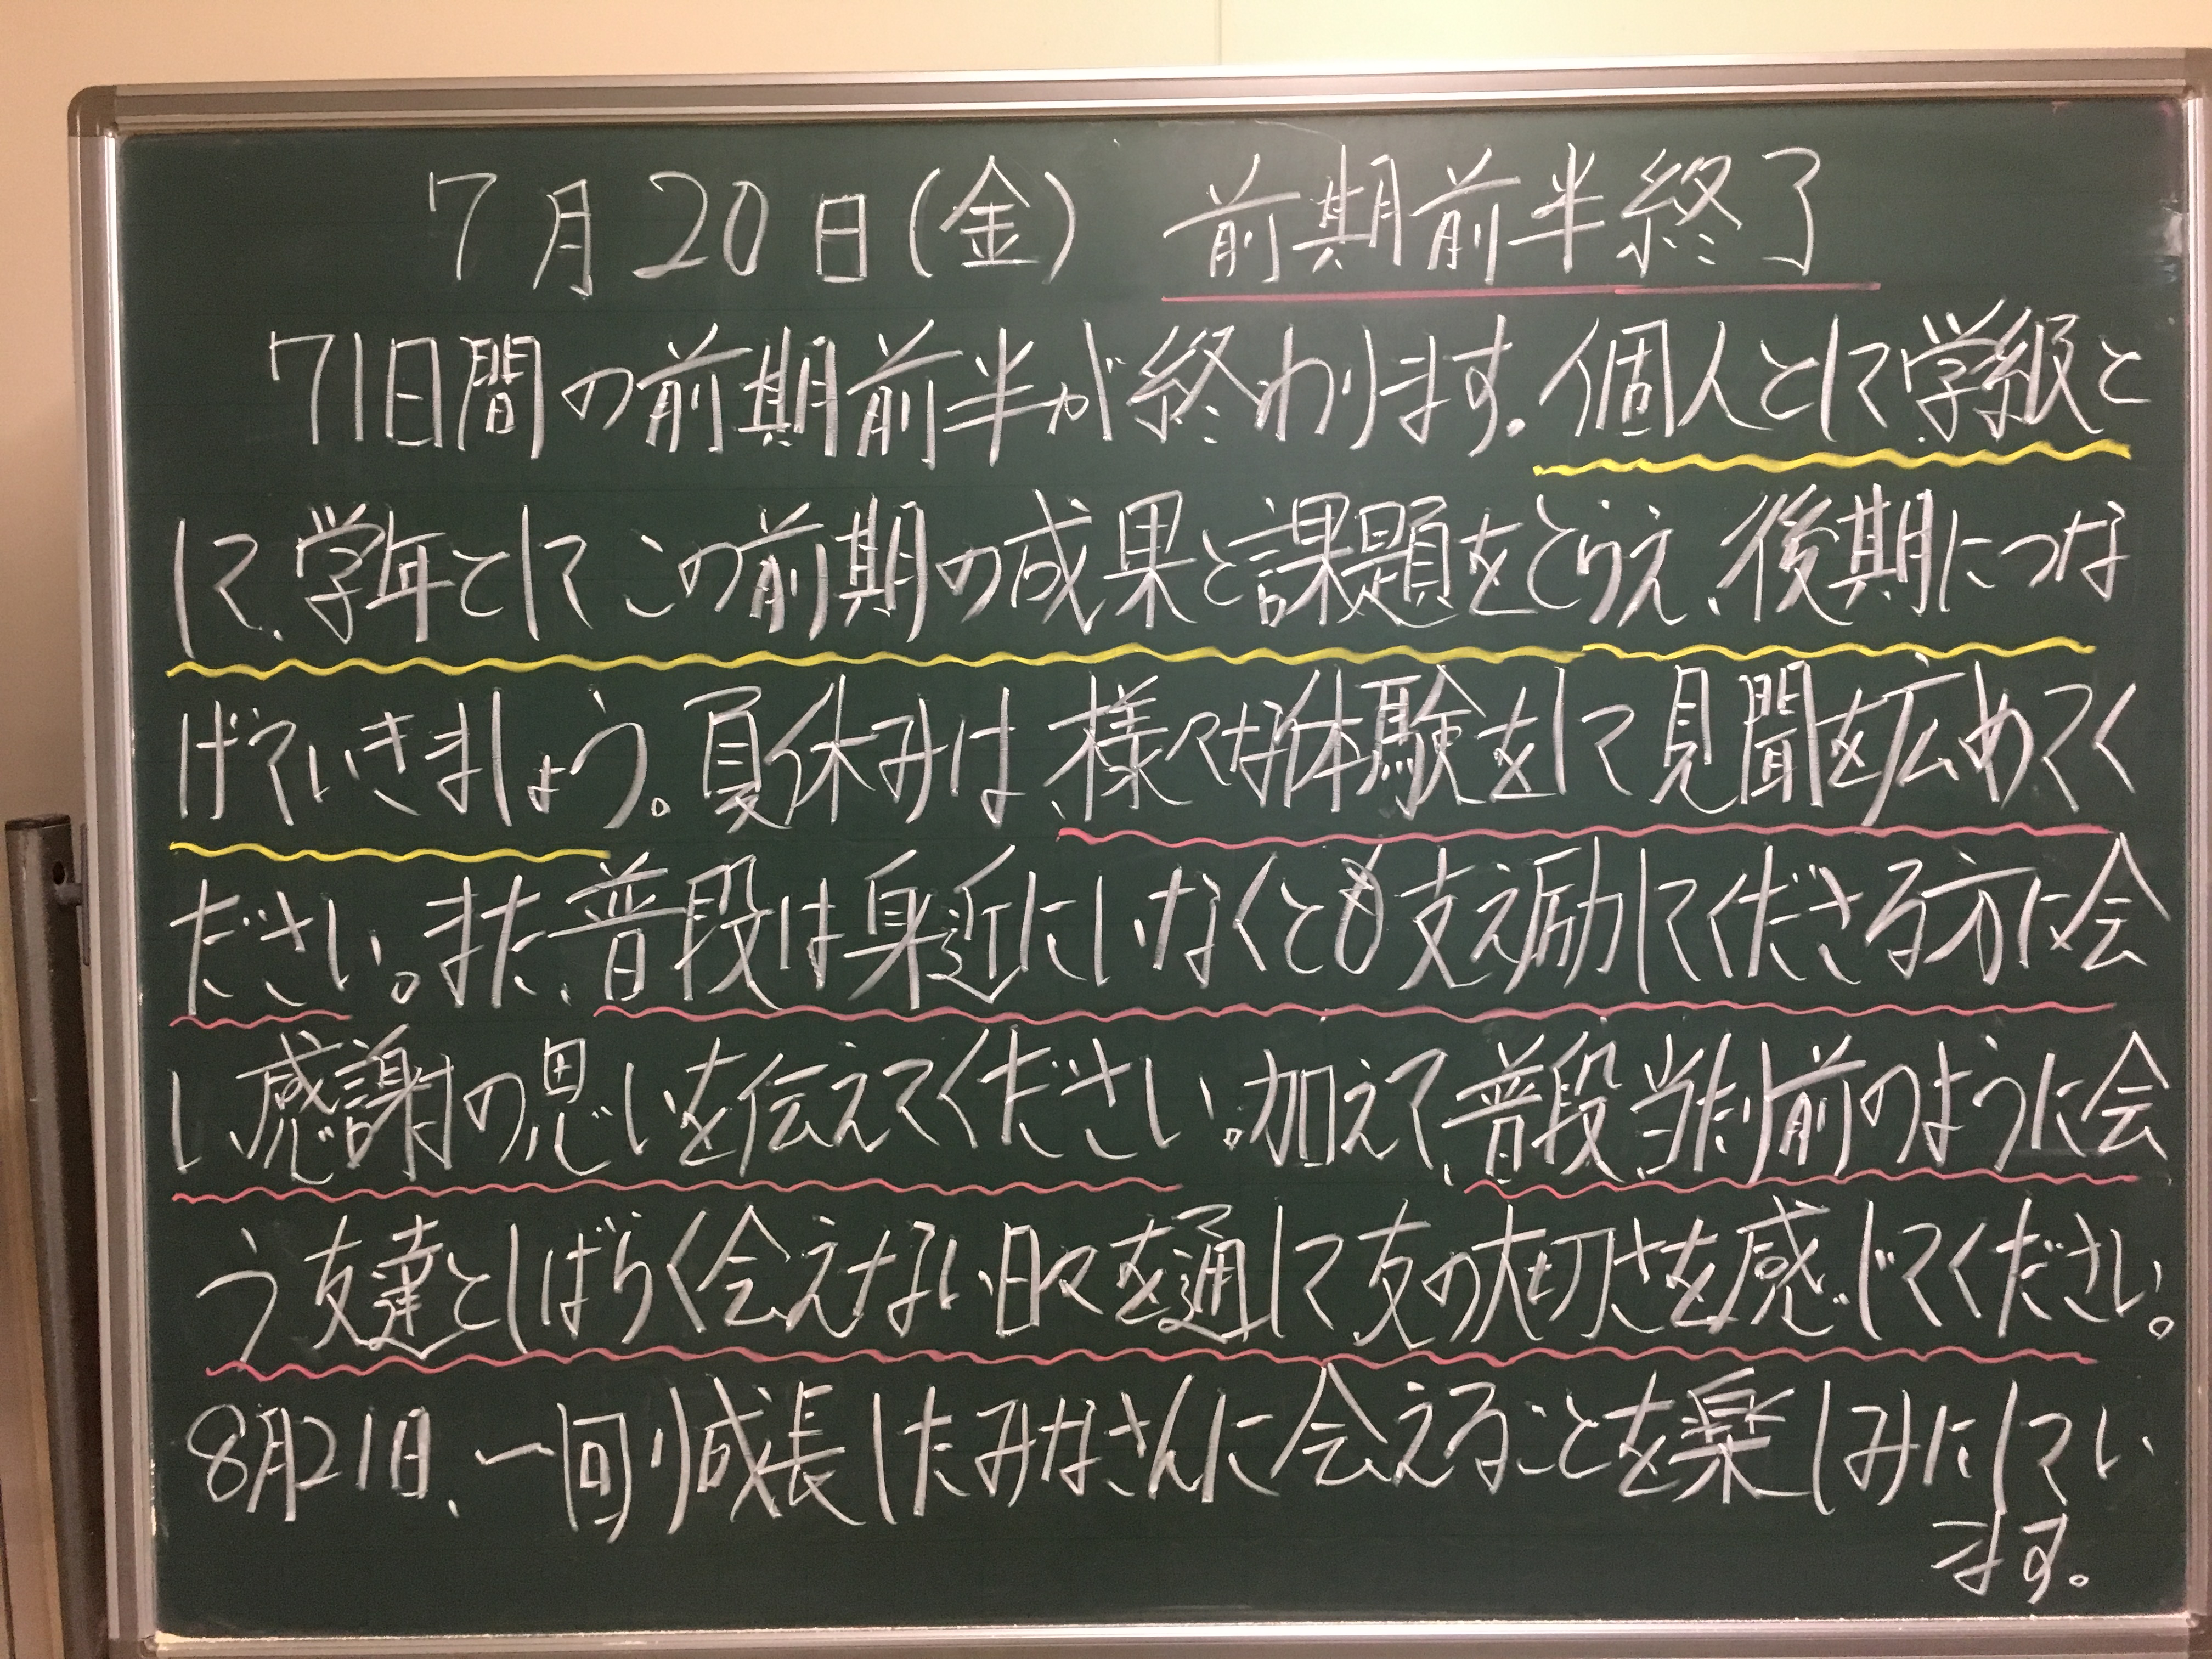 7月20日(金) 前期前半終了
71日間の前期前半が終わります。個人として学級と
して、学年としてこの前期の成果と課題をとらえ、後期につな
げていきましょう。夏休みは、様々な体験をして見聞を広めてく
ださい。また、普段は身近にいなくとも支え励してくださる方に会
い、感謝の思いを伝えてください。加えて、普段当たり前のように会
う友達としばらく会えない日々を通して友の大切さを感じてください。
8月21日、一回り成長したみなさんに会えることを楽しみにしてい
ます。